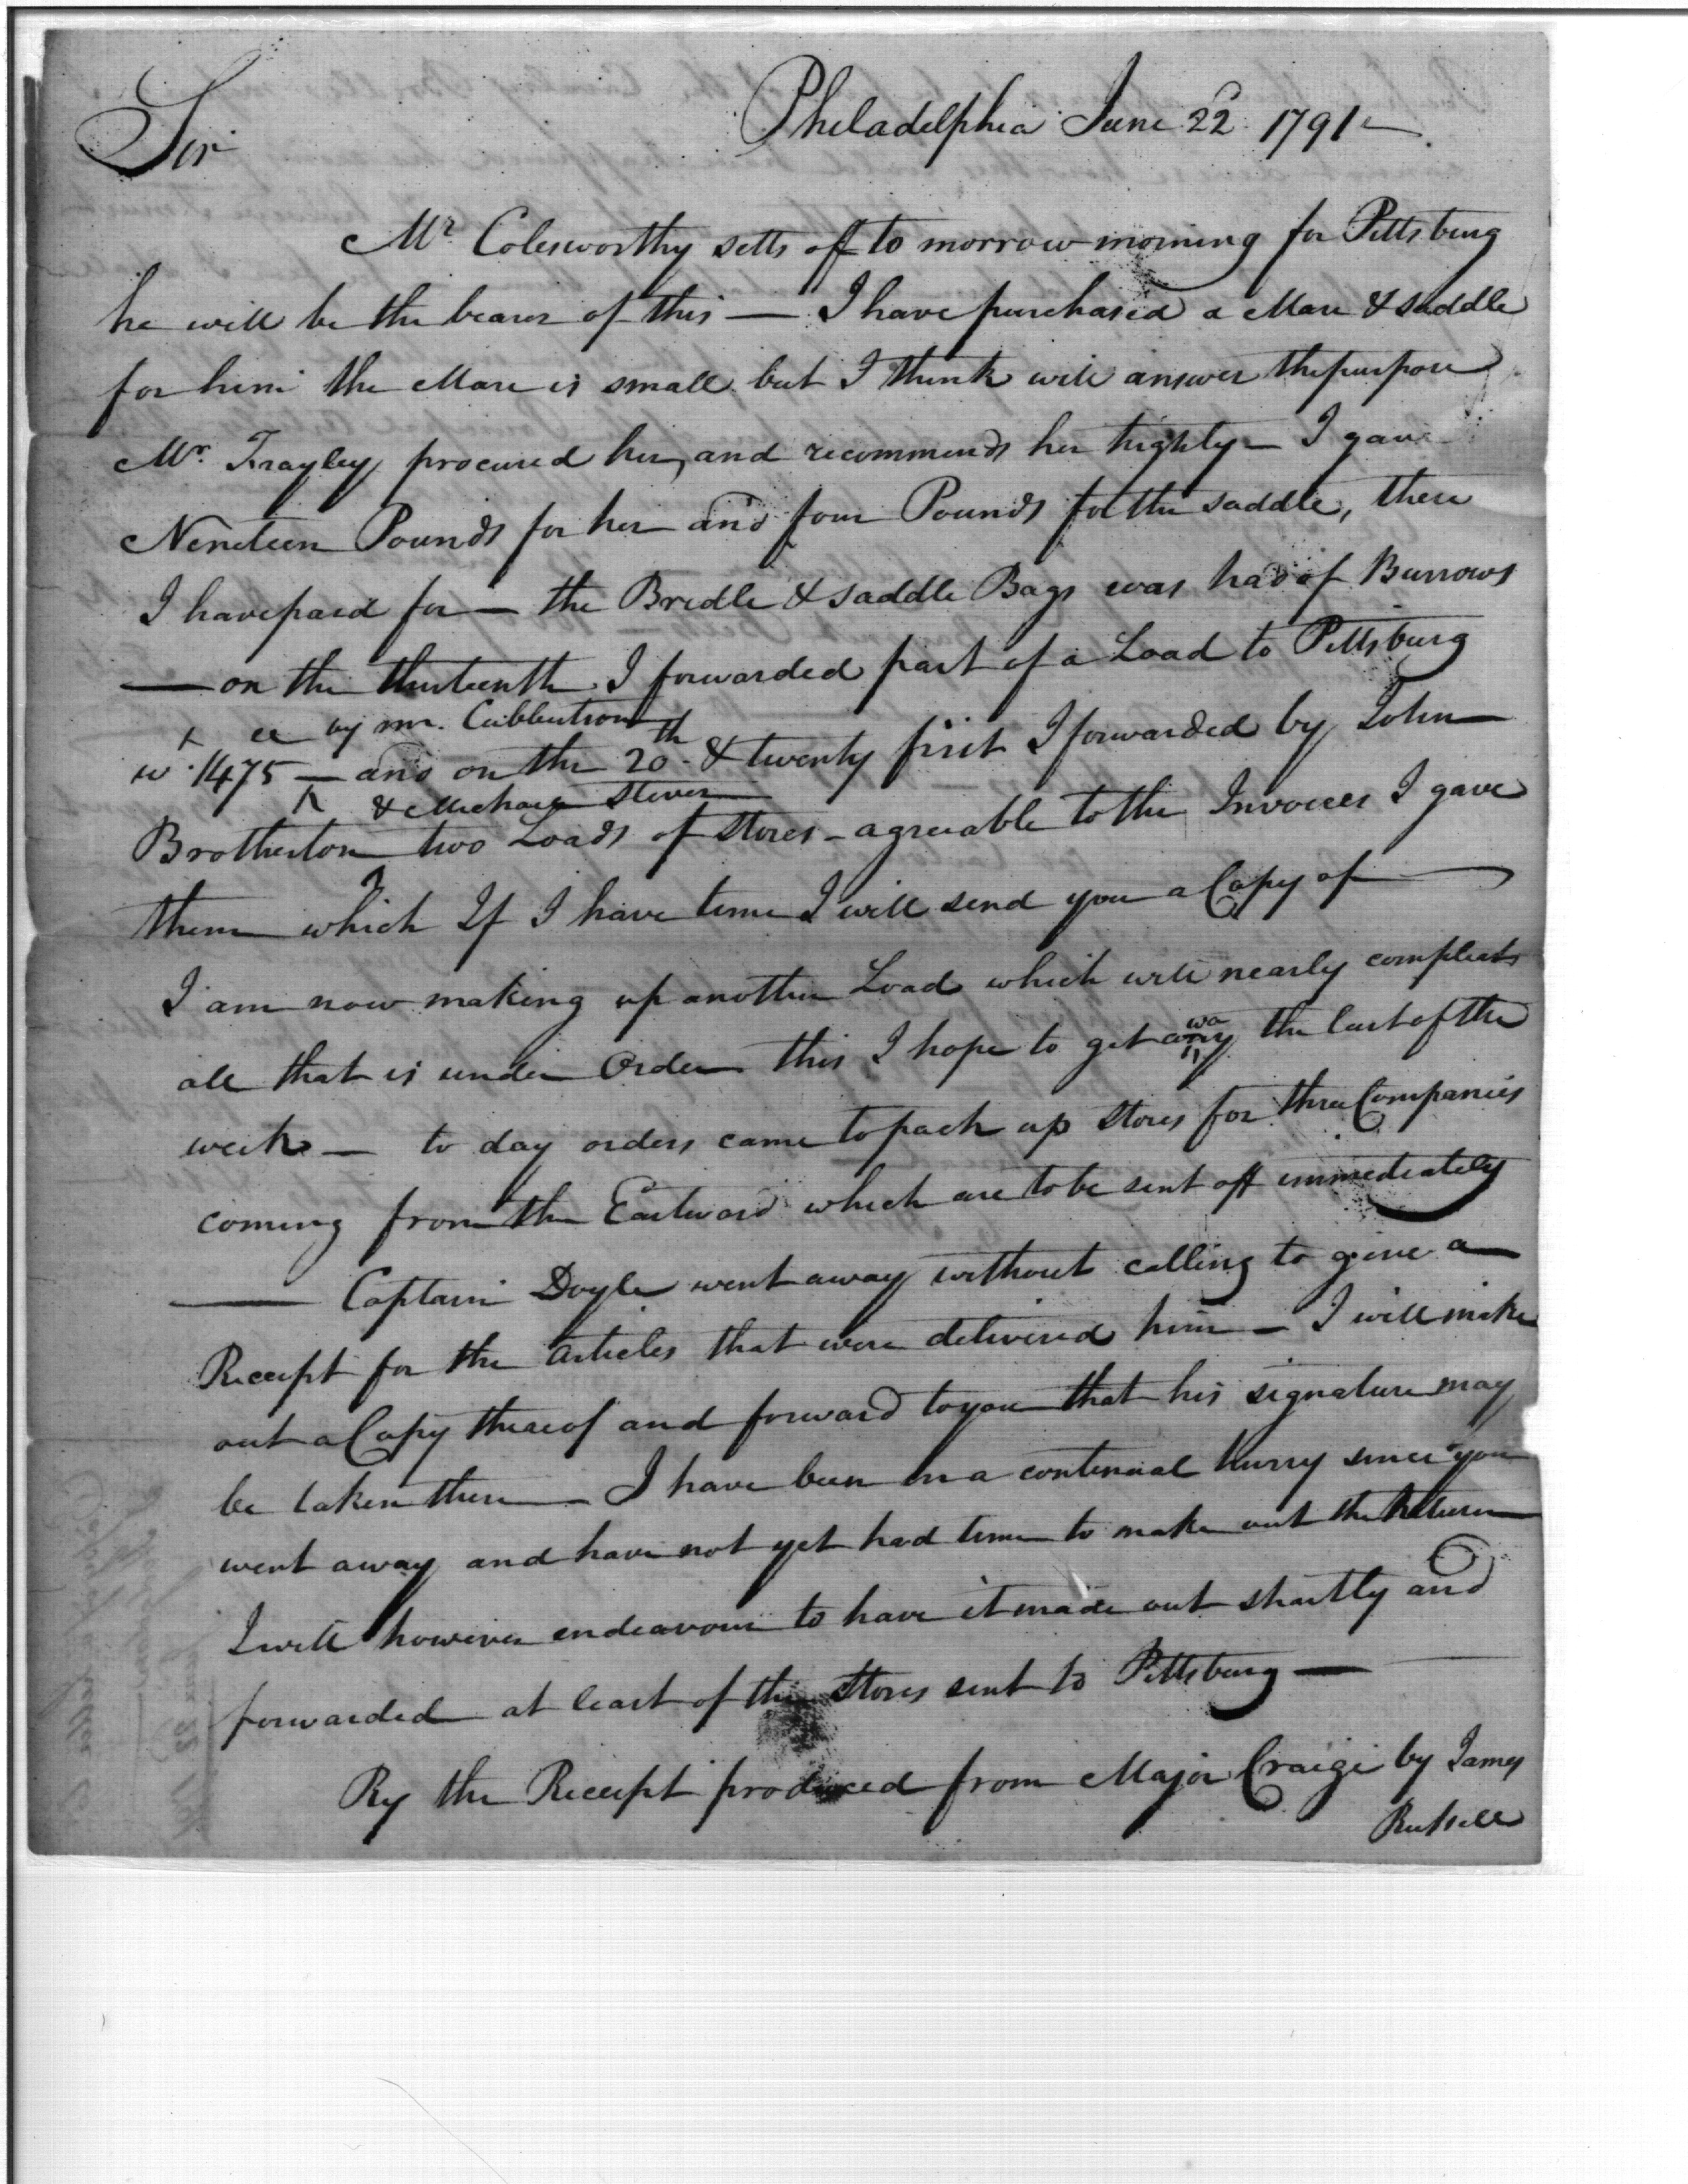 Philadelphia June 22d 1791
Sir
Mr Colesworthy setts off to morrow morning for Pittsburg
he will be the bearer of this — I have purchased a Mare & saddle
for him the Mare is small but I think will answer the purpose
Mr. Frayley procured her, and recommends her highly — I gave
Nineteen Pounds for her and four Pounds for the saddle, these
I have paid for — the Bridle & saddle Bags was had of Burrows
— on the thirteenth I forwarded part of a Load to Pittsburg
by mr. Cubbertson
w. 1475 — and on the 20th & twenty first I forwarded by John
& Michael Stever
Brotherton two Loads of Stores — agreeable to the Invoices I gave
them which If I have time I will send you a Copy of
I am now making up another Load which will nearly compleat
all that is under Order this I hope to get away the last of the
week — to day orders came to pack up Stores for three Companies
coming from the Eastward which are to be sent off immediately
— Captain Doyle went away without calling to give a
Receipt for the Articles that were delivered him — I will make
out a Copy thereof and forward to you that his signature may
be taken there — I have been in a continual hurry since you
went away and have not yet had time to make out the Return
I will however endeavour to have it made out shortly and
forwarded at least of the Stores sent to Pittsburg —
By the Receipt produced from Major Craige by James
Russell